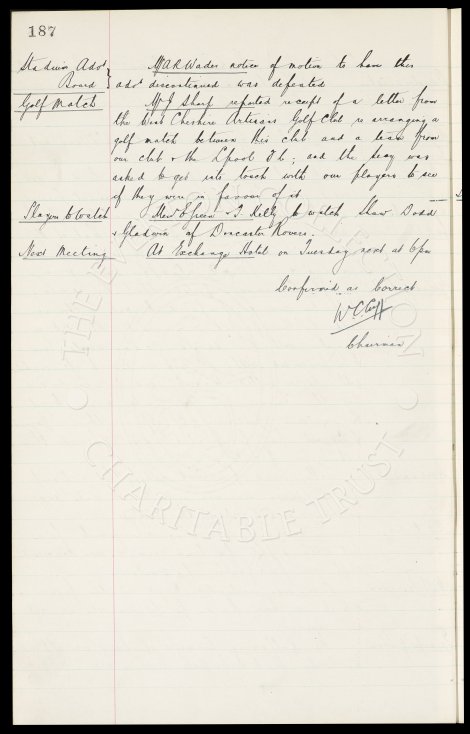 187
Stadium Advt Board
Mr A R Wades notice of motion to have this
advt discontinued was defeated
Golf Match
Mr J Sharp reported receipt of a letter from
the West Cheshire Artisans Golf Club re arranging a
golf match between this club and a team from
our club & the Lpool F C; and the Secy was
asked to get into touch with our players to see
if they were in favour of it
Players to Watch
Messrs Green & T. Kelly to watch Shaw. Dodd
& Gladwin of Doncaster Rovers.
Next Meeting
At Exchange Hotel on Tuesday next at 6pm
Confirmed as Correct
W. C. Cuff
Chairman
THE EVERTON COLLECTION
CHARITABLE TRUST